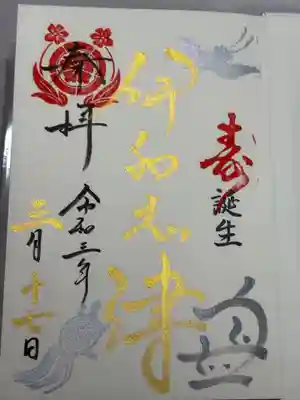 寿
誕生
伊和志津
奉拝
令和三年
三月十七日